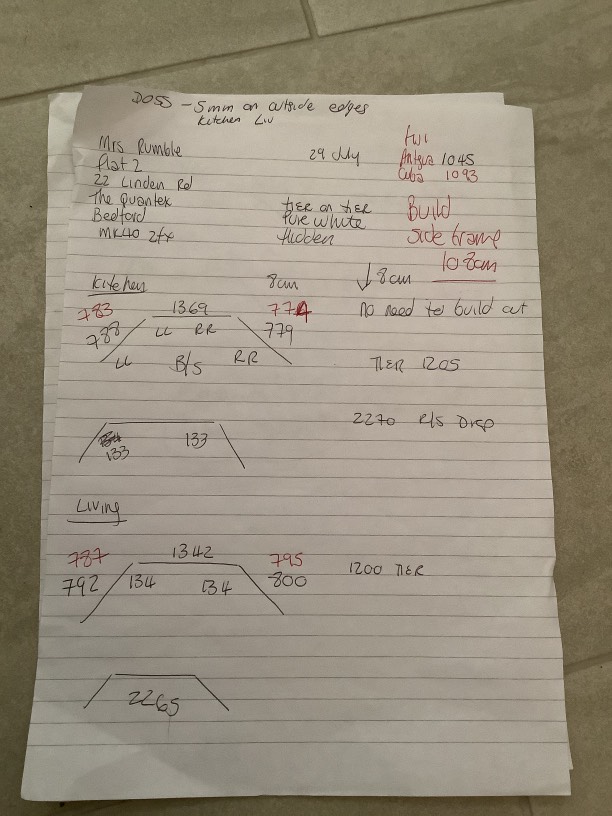 DOSS - 5mm on outside edges
Kitchen Liv
Mrs Rumble
flat 2
22 Linden Rd
The Quantek
Bedford
MK40
29 July
TIER ON TIER
Pure white
Hidden
Antgua 1045
Cuba 1093
Build
side frame
108cm
Kitchen
8cm
↓ 8cm
no need to build out
783
1369
774
788
LL RR
779
LL
B/S
RR
TIER 1205
2270 B/S Drop
133
133
Living
787
1342
795
792
134
134
800
1200 TIER
2265